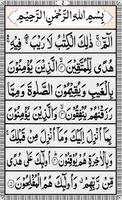 2
بِسْمِ اللهِ الرَّحْمٰنِ الرَّحِيْمِ
الٓمّٓ ۚ ذٰلِكَ الْكِتٰبُ لَا رَيْبَ ۛ فِيْهِ ۛ
هُدًى لِّلْمُتَّقِيْنَ ۙ الَّذِيْنَ يُؤْمِنُوْنَ
بِالْغَيْبِ وَيُقِيْمُوْنَ الصَّلٰوةَ وَمِمَّا
رَزَقْنٰهُمْ يُنْفِقُوْنَ ۙ وَالَّذِيْنَ يُؤْمِنُوْنَ
بِمَآ اُنْزِلَ اِلَيْكَ وَمَآ اُنْزِلَ مِنْ
قَبْلِكَ ۚ وَبِالْاٰخِرَةِ هُمْ يُوْقِنُوْنَ ؕ اُولٰٓئِكَ عَلٰى هُدًى
مِّنْ رَّبِّهِمْ ۙ وَاُولٰٓئِكَ هُمُ الْمُفْلِحُوْنَ